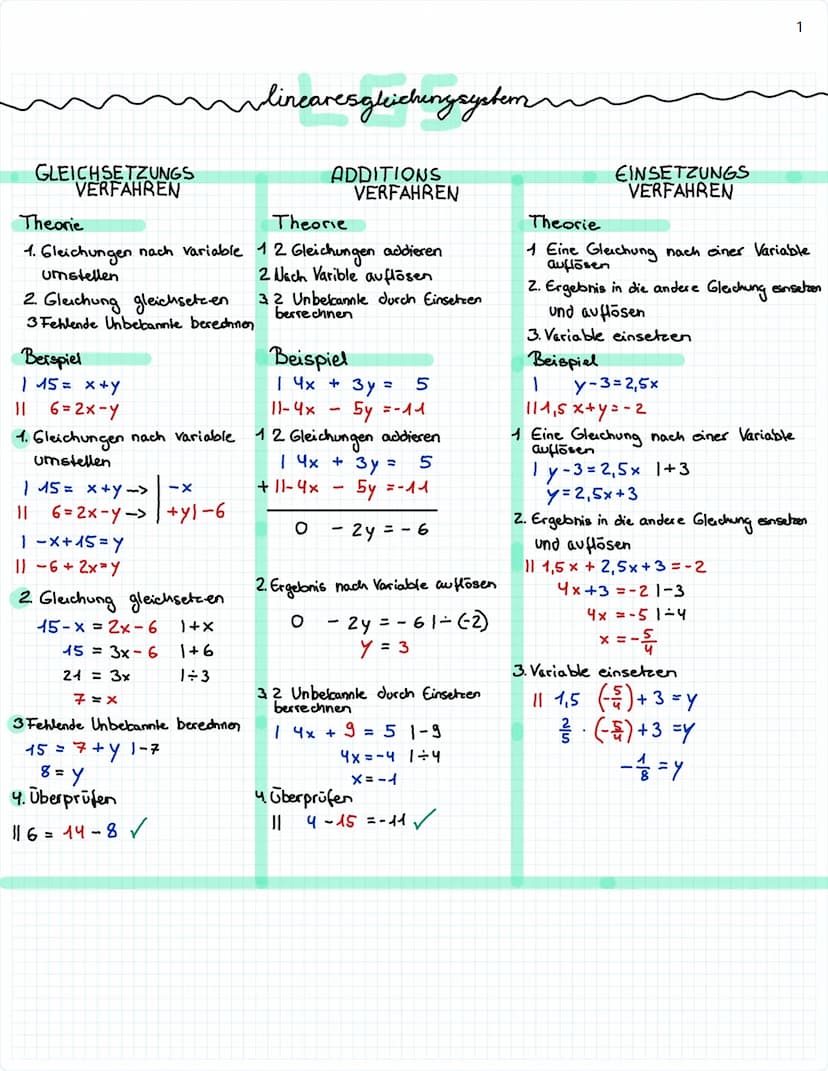 1
LGS
lineares gleichungsystem
GLEICHSETZUNGS
VERFAHREN
Theorie
1. Gleichungen nach Variable
umstellen
2. Gleichung gleichsetzen
3 Fehlende Unbekannte berechnen
Beispiel
| 15 = x+y
|| 6=2x-y
1. Gleichungen nach Variable
umstellen
| 15 = x+y -> | -x
|| 6=2x-y -> | +y|-6
| -x+15=y
|| -6+2x=y
2. Gleichung gleichsetzen
15-x = 2x-6 |+x
15 = 3x-6 |+6
21 = 3x |÷3
7 = x
3 Fehlende Unbekannte berechnen
15 = 7+y |-7
8 = y
4. Überprüfen
|| 6 = 14 - 8 ✓
ADDITIONS
VERFAHREN
Theorie
1 2 Gleichungen addieren
2 Nach Varible auflösen
3 2 Unbekannte durch Einsetzen
berrechnen
Beispiel
| 4x + 3y = 5
||-4x - 5y =-11
1 2 Gleichungen addieren
| 4x + 3y = 5
+ ||-4x - 5y =-11
0 - 2y = -6
2. Ergebnis nach Variable auflösen
0 - 2y = -6 |÷(-2)
y = 3
3 2 Unbekannte durch Einsetzen
berrechnen
| 4x + 9 = 5 |-9
4x = -4 |÷4
x = -1
4. Überprüfen
|| 4 - 15 = -11 ✓
EINSETZUNGS
VERFAHREN
Theorie
1 Eine Gleichung nach einer Variable
auflösen
2. Ergebnis in die andere Gleichung einsetzen
und auflösen
3. Variable einsetzen
Beispiel
| y-3=2,5x
|| 1,5x+y=-2
1 Eine Gleichung nach einer Variable
auflösen
| y-3=2,5x |+3
y=2,5x+3
2. Ergebnis in die andere Gleichung einsetzen
und auflösen
|| 1,5x + 2,5x+3 = -2
4x+3 = -2 |-3
4x = -5 |÷4
x = -5/4
3. Variable einsetzen
|| 1,5 (-5/4) + 3 = y
2/5 · (-5/4) + 3 = y
-1/8 = y